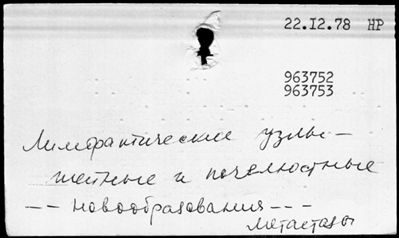 22.I2.78 НР
963752
963753
Лимфатические узлы –
шейные и почелюстные
-- новообразования ---
метастазы